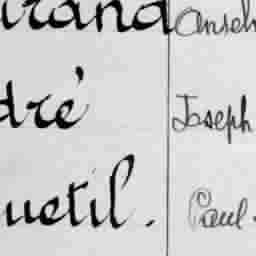 urand Anseln
dré Joseph
uetil. Paul.